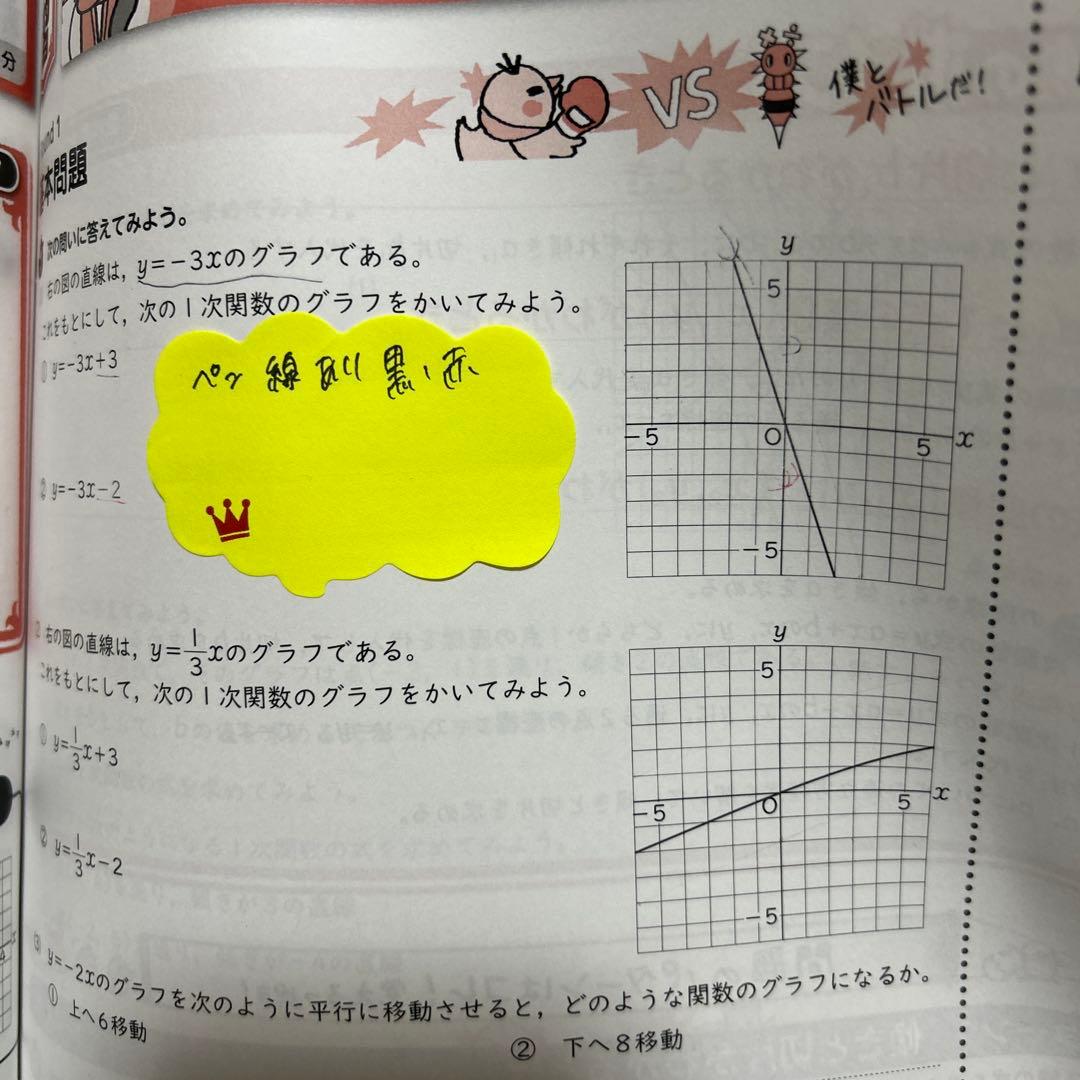 分
VS
僕と
バトルだ!
und 1
本問題
次の問いに答えてみよう。
右の図の直線は, y=-3xのグラフである。
これをもとにして, 次の1次関数のグラフをかいてみよう。
① y=-3x+3
ペン線あり 黒、赤
② y=-3x-2
y
5
-5
O
5
x
-5
右の図の直線は, y=1/3xのグラフである。
これをもとにして, 次の1次関数のグラフをかいてみよう。
① y=1/3x+3
② y=1/3x-2
y
5
-5
O
5
x
-5
(3) y=-2xのグラフを次のように平行に移動させると, どのような関数のグラフになるか。
① 上へ6移動
② 下へ8移動